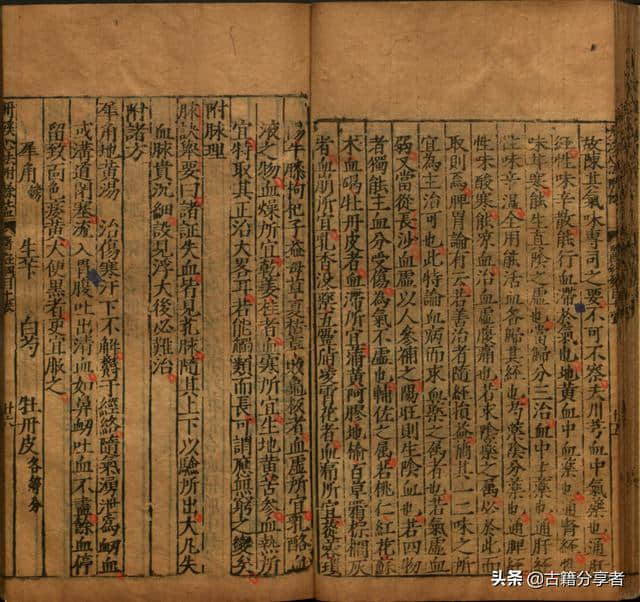 故陳其氣味專司之要不可不察夫川芎血中氣藥也通肝
經性味辛散能行血滯於氣也地黃血中血藥也通腎經性
味甘寒能生真陰之虛也當歸分三治血中主藥也通肝經
性味辛溫全用能活血各歸其經也芍藥陰分藥也通脾經
性味酸寒能凉血治血虛腹痛也若求陰藥之屬必於此而
取則焉脾胃論有云若善治者隨經損益摘其一二味之所
宜為主治可也此特論血病而求血藥之屬者也若氣虛血
弱又當從長沙血虛以人參補之陽旺則生陰血也若四物
者獨能主血分受傷為氣不虛也輔佐之屬若桃仁紅花蘇
木血竭牡丹皮者血滯所宜蒲黃阿膠地榆百草霜棕櫚灰
者血崩所宜乳香沒藥五靈脂凌霄花者血痛所宜蓯蓉瑣
陽牛膝枸杞子益母草夏枯草敗龜板者血虛所宜乳酪血
液之物血燥所宜乾姜桂者血寒所宜生地黃苦參血熱所
宜特取其正治大畧耳若能觸類而長可謂應無窮之變矣
附脉理
脉訣舉要曰諸証失血皆見芤脉隨其上下以驗所出大凡失
血脉貴沉細設見浮大後必難治
附諸方
犀角地黃湯 治傷寒汗下不解鬱于經絡隨氣湧泄為衄血
或溝道閉塞流入胃腹吐出清血如鼻衄吐血不盡餘血停
留致面色痿黃大便黑者更宜服之
犀角鎊 生芐 白芍 牡丹皮各等分
頭条@古籍分享者